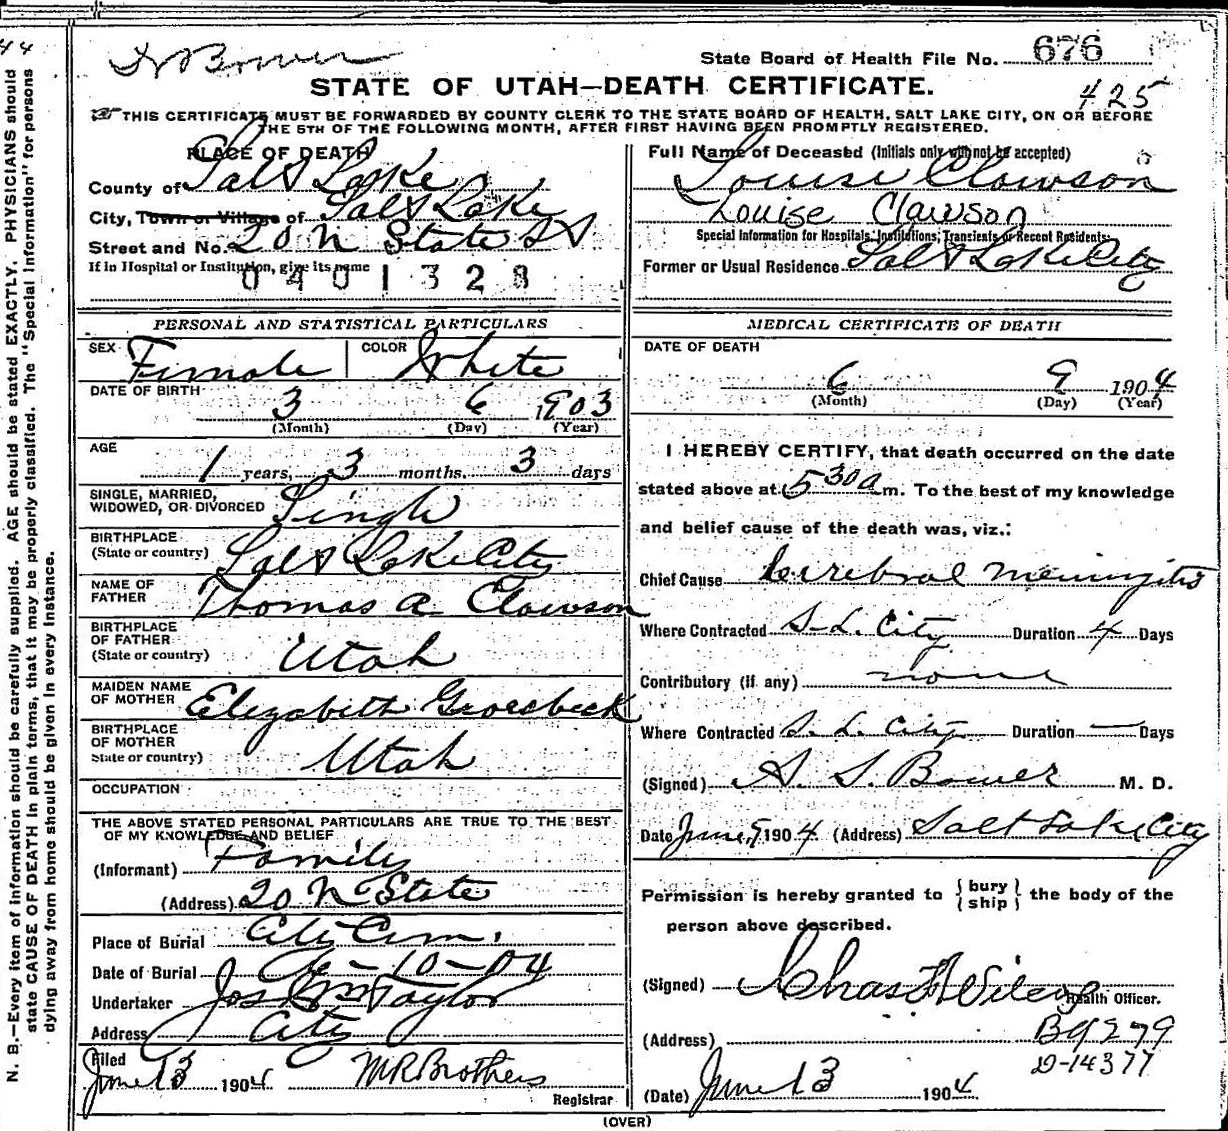 44
Dr Bower
State Board of Health File No. 676
STATE OF UTAH—DEATH CERTIFICATE.
425
THIS CERTIFICATE MUST BE FORWARDED BY COUNTY CLERK TO THE STATE BOARD OF HEALTH, SALT LAKE CITY, ON OR BEFORE
THE 5TH OF THE FOLLOWING MONTH, AFTER FIRST HAVING BEEN PROMPTLY REGISTERED.
PLACE OF DEATH
County of Salt Lake
City, Town or Village of Salt Lake
Street and No. 20 N State St
If in Hospital or Institution, give its name
0401328
Full Name of Deceased (Initials only will not be accepted)
Louise Clawson
Louise Clawson
Special Information for Hospitals, Institutions, Transients or Recent Residents:
Former or Usual Residence Salt Lake City
PERSONAL AND STATISTICAL PARTICULARS
SEX Female COLOR White
DATE OF BIRTH
3 6 1903
(Month) (Day) (Year)
AGE
1 years, 3 months, 3 days
SINGLE, MARRIED,
WIDOWED, OR DIVORCED Single
BIRTHPLACE
(State or country) Salt Lake City
NAME OF
FATHER Thomas A Clawson
BIRTHPLACE
OF FATHER
(State or country) Utah
MAIDEN NAME
OF MOTHER Elizabeth Groesbeck
BIRTHPLACE
OF MOTHER
State or country) Utah
OCCUPATION
THE ABOVE STATED PERSONAL PARTICULARS ARE TRUE TO THE BEST
OF MY KNOWLEDGE AND BELIEF
(Informant) Family
(Address) 20 N State
Place of Burial City Cem.
Date of Burial 6-10-04
Undertaker Jos Wm Taylor
Address City
Filed
June 13 1904 M R Brothers
Registrar
MEDICAL CERTIFICATE OF DEATH
DATE OF DEATH
6 9 1904
(Month) (Day) (Year)
I HEREBY CERTIFY, that death occurred on the date
stated above at 5 30 a m. To the best of my knowledge
and belief cause of the death was, viz.:
Chief Cause Cerebral Meningitis
Where Contracted S. L. City Duration 4 Days
Contributory (if any) none
Where Contracted S. L. City Duration — Days
(Signed) A. S. Bower M. D.
Date June 1904 (Address) Salt Lake City
Permission is hereby granted to { bury ship } the body of the
person above described.
(Signed) Chas Wilcox
Health Officer.
(Address) B 9279
D-14377
(Date) June 13 1904
(OVER)
N. B.—Every item of information should be carefully supplied. AGE should be stated EXACTLY. PHYSICIANS should
state CAUSE OF DEATH in plain terms, that it may be properly classified. The "Special Information" for persons
dying away from home should be given in every instance.